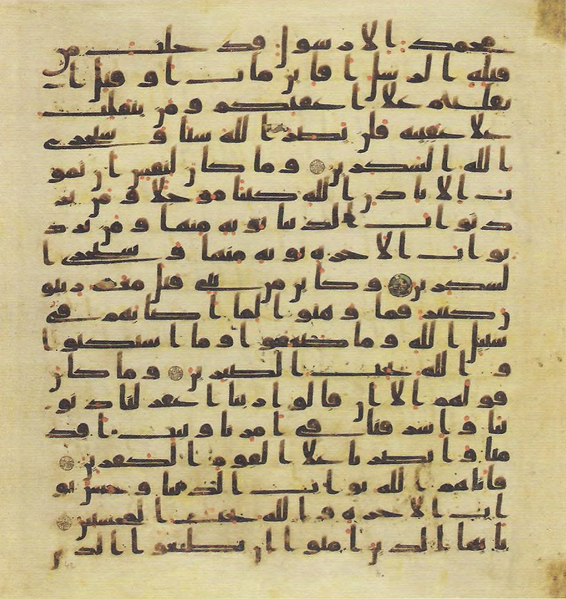 محمد الا رسول قد خلت من
قبله الرسل افاين مات او قتل ا
نقلبتم علا اعقبكم ومن ينقلب
علا عقبيه فلن يضر الله شيا وسيجزي
الله الشكرين وما كان لنفس ان تمو
ت الا باذن الله كتبا موجلا ومن ير
د ثواب الدنيا نوته منها ومن يرد
ثواب الاخره نوته منها وسنجزي ا
لشكرين وكاين من نبي قتل معه ربيو
ن كثير فما وهنوا لما اصابهم في
سبيل الله وما ضعفوا وما استكنوا
و الله يحب الصبرين وما كان
قولهم الا ان قالوا ربنا اغفر لنا ذنو
بنا واسرفنا في امرنا وثبت اقد
منا وانصرنا علا القوم الكفرين
فاتهم الله ثواب الدنيا وحسن ثو
اب الاخره والله يحب المحسنين
يايها الذين امنوا ان تطيعوا الذين